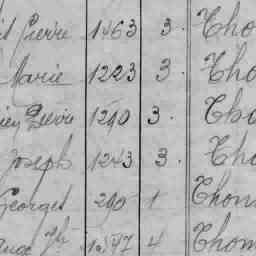 Pierre 1463 3. Tho
Marie 1223 3. Tho
1240 3. Tho
Joseph 1243 3. Tho
Georges 290 1 Thom
4 Thom